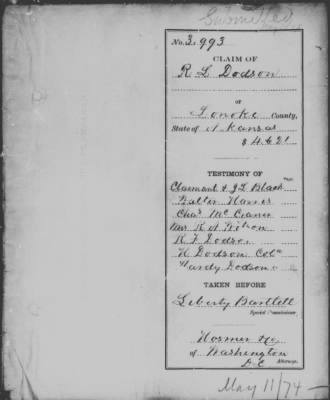 Submitted
No. 3,993
CLAIM OF
R L Dodson
OF
Lonoke County,
State of Arkansas
$ 462
TESTIMONY OF
Claimant & J L Black
Walter Harris
Chas Mc
Mrs R A
R F Dodson
H Dodson Cold
Hardy Dodson
TAKEN BEFORE
Liberty Bartlett
Special Commissioner.
Hosmer &c
of Washington
D.C. Attorney.
May 11/74 —